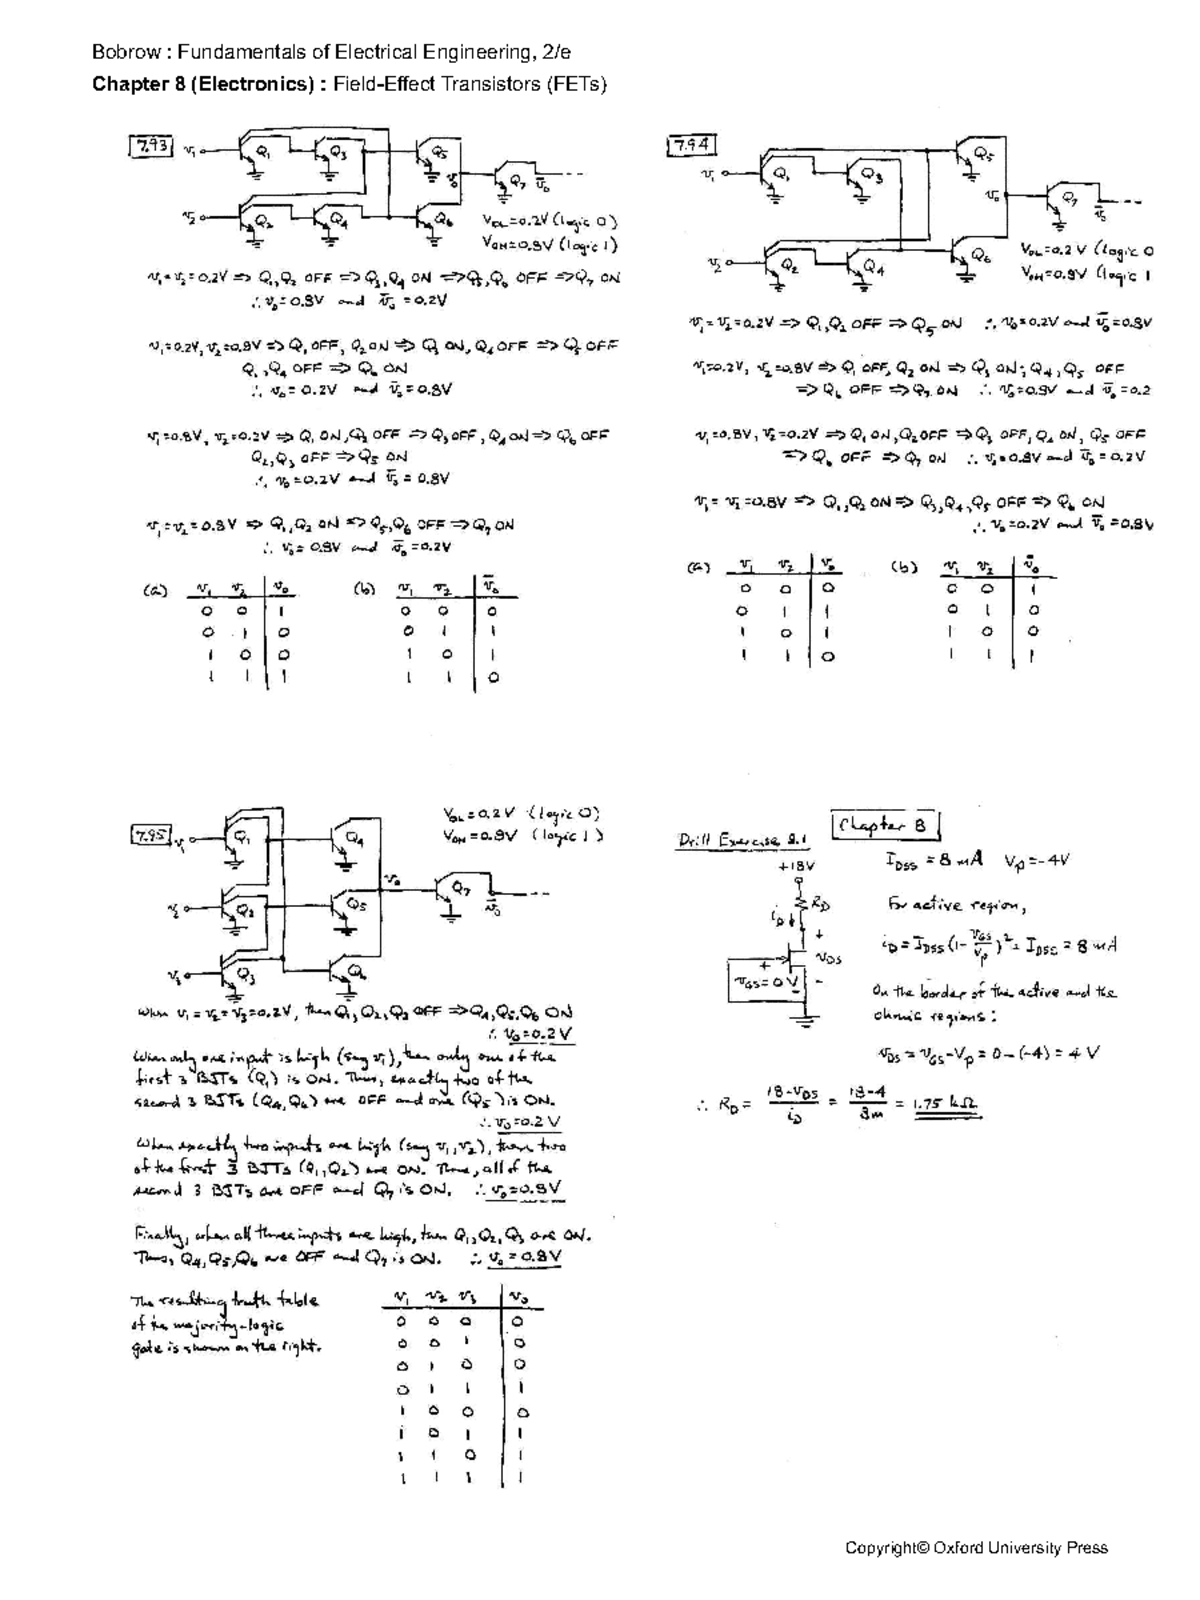 Bobrow : Fundamentals of Electrical Engineering, 2/e
Chapter 8 (Electronics) : Field-Effect Transistors (FETs)
7.93
v₁ Q₁ Q₃ Q₅
v₀ Q₇ v̄₀
v₂ Q₂ Q₄ Q₆
V_OL = 0.2V (logic 0)
V_OH = 0.8V (logic 1)
v₁ = v₂ = 0.2V => Q₁,Q₂ OFF => Q₃,Q₄ ON => Q₅,Q₆ OFF => Q₇ ON
∴ v₀ = 0.8V and v̄₀ = 0.2V
v₁ = 0.2V, v₂ = 0.8V => Q₁ OFF, Q₂ ON => Q₃ ON, Q₄ OFF => Q₅ OFF
Q₁,Q₄ OFF => Q₆ ON
∴ v₀ = 0.2V and v̄₀ = 0.8V
v₁ = 0.8V, v₂ = 0.2V => Q₁ ON, Q₂ OFF => Q₃ OFF, Q₄ ON => Q₆ OFF
Q₂,Q₃ OFF => Q₅ ON
∴ v₀ = 0.2V and v̄₀ = 0.8V
v₁ = v₂ = 0.8V => Q₁,Q₂ ON => Q₅,Q₆ OFF => Q₇ ON
∴ v₀ = 0.8V and v̄₀ = 0.2V
(a) v₁ v₂ v₀ (b) v₁ v₂ v̄₀
0 0 1 0 0 0
0 1 0 0 1 1
1 0 0 1 0 1
1 1 1 1 1 0
7.94
v₁ Q₁ Q₃ Q₅
v₀ Q₇ v̄₀
v₂ Q₂ Q₄ Q₆
V_OL = 0.2 V (logic 0
V_OH = 0.8V (logic 1
v₁ = v₂ = 0.2V => Q₁,Q₂ OFF => Q₅ ON ∴ v₀ = 0.2V and v̄₀ = 0.8V
v₁ = 0.2V, v₂ = 0.8V => Q₁ OFF, Q₂ ON => Q₃ ON; Q₄, Q₅ OFF
=> Q₆ OFF => Q₇ ON ∴ v₀ = 0.8V and v̄₀ = 0.2
v₁ = 0.8V, v₂ = 0.2V => Q₁ ON, Q₂ OFF => Q₃ OFF, Q₄ ON, Q₅ OFF
=> Q₆ OFF => Q₇ ON ∴ v₀ = 0.8V and v̄₀ = 0.2V
v₁ = v₂ = 0.8V => Q₁,Q₂ ON => Q₃,Q₄,Q₅ OFF => Q₆ ON
∴ v₀ = 0.2V and v̄₀ = 0.8V
(a) v₁ v₂ v₀ (b) v₁ v₂ v̄₀
0 0 0 0 0 1
0 1 1 0 1 0
1 0 1 1 0 0
1 1 0 1 1 1
7.95
V_OL = 0.2 V (logic 0)
V_OH = 0.8V (logic 1)
v₁ Q₁ Q₄
v₀ Q₇ v̄₀
v₂ Q₂ Q₅
v₃ Q₃ Q₆
When v₁ = v₂ = v₃ = 0.2V, then Q₁,Q₂,Q₃ OFF => Q₄,Q₅,Q₆ ON
∴ v₀ = 0.2V
When only one input is high (say v₁), then only one of the
first 3 BJTs (Q₁) is ON. Thus, exactly two of the
second 3 BJTs (Q₄,Q₆) are OFF and one (Q₅) is ON.
∴ v₀ = 0.2 V
When exactly two inputs are high (say v₁,v₂), then two
of the first 3 BJTs (Q₁,Q₂) are ON. Thus, all of the
second 3 BJTs are OFF and Q₇ is ON. ∴ v₀ = 0.8V
Finally, when all three inputs are high, then Q₁,Q₂,Q₃ are ON.
Thus, Q₄,Q₅,Q₆ are OFF and Q₇ is ON. ∴ v₀ = 0.8V
The resulting truth table
of the majority-logic
gate is shown on the right.
v₁ v₂ v₃ v₀
0 0 0 0
0 0 1 0
0 1 0 0
0 1 1 1
1 0 0 0
1 0 1 1
1 1 0 1
1 1 1 1
Chapter 8
Drill Exercise 8.1
+18V
R_D
i_D
+
v_DS
+
v_GS = 0V
-
-
I_DSS = 8 mA V_p = -4V
For active region,
i_D = I_DSS (1 - v_GS/V_p)² = I_DSS = 8 mA
On the border of the active and the
ohmic regions:
v_DS = v_GS - V_p = 0 - (-4) = 4 V
∴ R_D = (18 - v_DS)/i_D = (18 - 4)/8m = 1.75 kΩ
Copyright© Oxford University Press